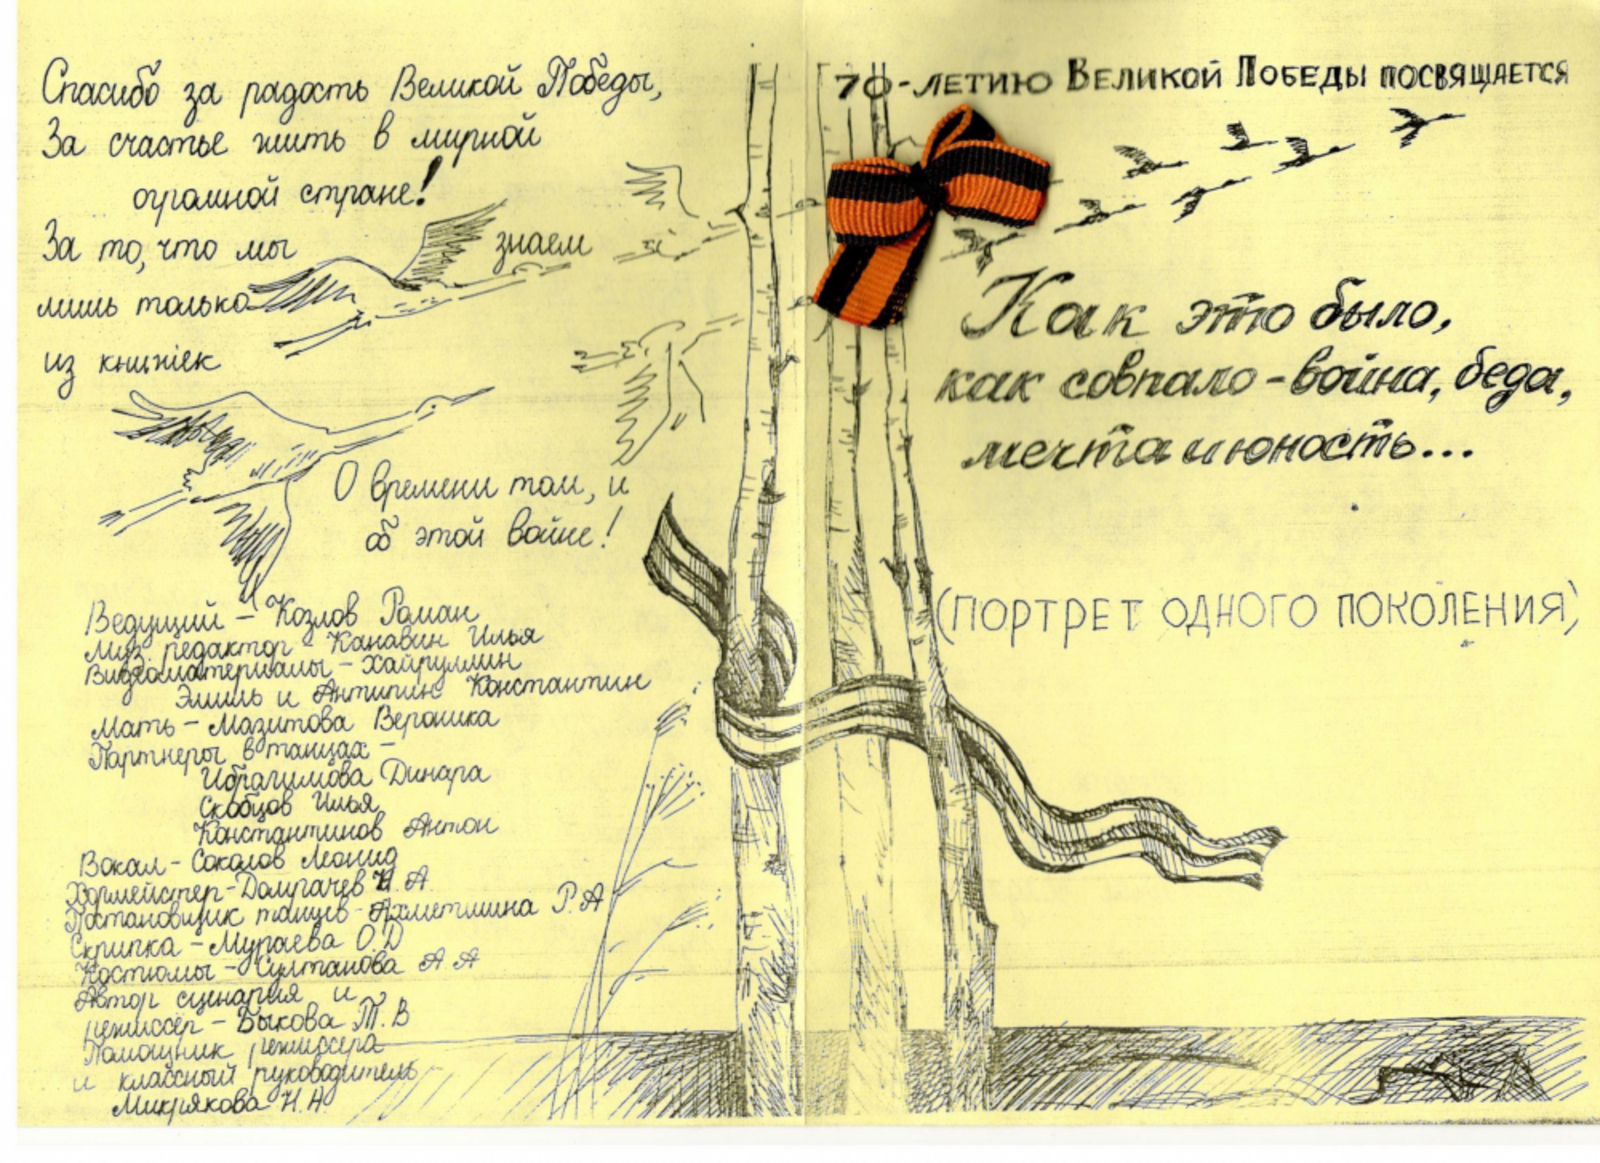 Спасибо за радость Великой Победы,
За счастье жить в мирной
огромной стране!
За то, что мы знаем
лишь только
из книжек
О времени том, и
об этой войне!
Ведущий – Козлов Роман
Муз. редактор – Канавин Илья
Видеоматериалы – Хайруллин
Эмиль и Антипин Константин
Мать – Мазитова Вероника
Партнеры в танцах –
Ибрагимова Динара
Скобцов Илья
Константинов Антон
Вокал – Соколов Леонид
Хормейстер – Домрачев Н. А.
Постановщик танцев – Ахметшина Р. А
Скрипка – Мураева О. Д
Костюмы – Султанова А А
Автор сценария и
режиссёр – Быкова Т. В
Помощник режиссера
и классный руководитель
Микрякова Н А
70-ЛЕТИЮ ВЕЛИКОЙ ПОБЕДЫ ПОСВЯЩАЕТСЯ
Как это было,
как совпало – война, беда,
мечта и юность...
(ПОРТРЕТ ОДНОГО ПОКОЛЕНИЯ)